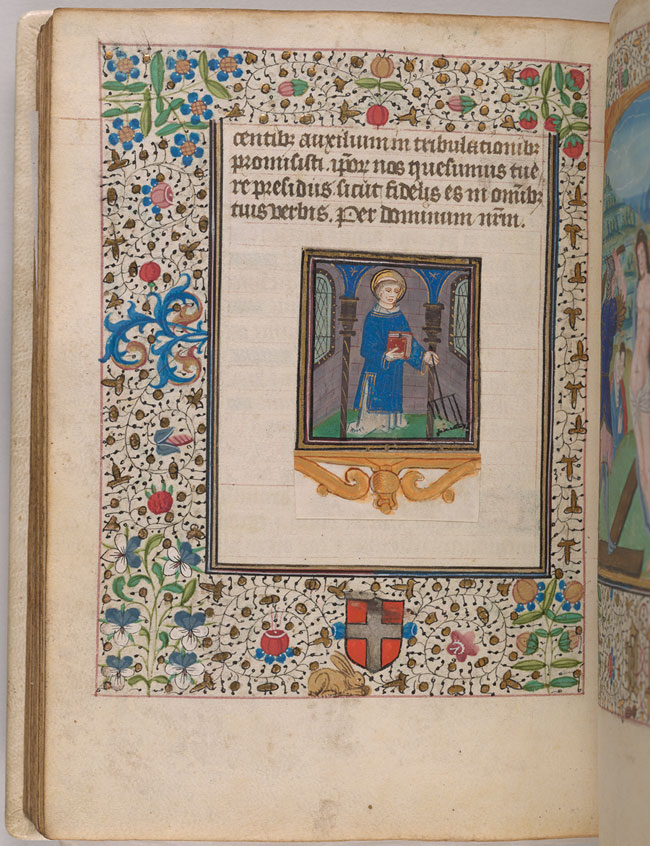 centibꝫ auxilium in tribulationibꝫ
promisisti. ip̄or nos quesumus tue
re presidijs sicut fidelis es in om̄ibꝫ
tuis verbis. Per dominum nr̄m.